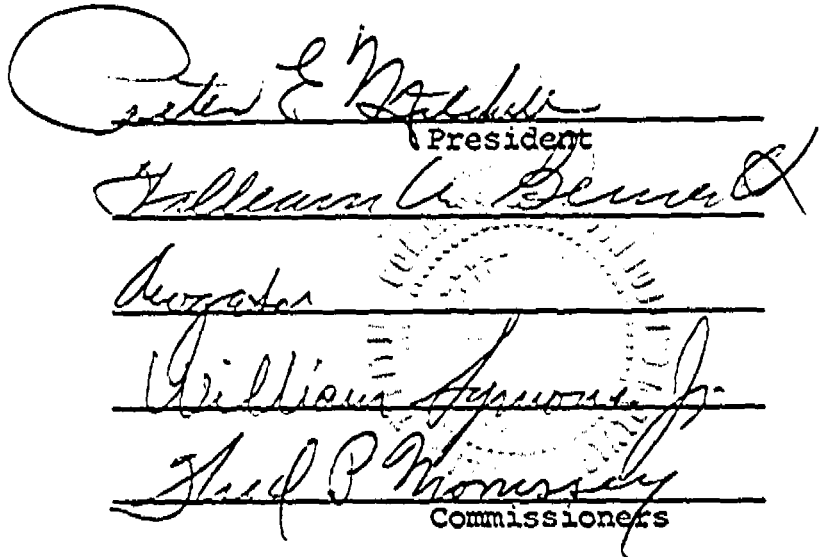 Peter E Mitchell
President
William M. Bennett
William Symons, Jr.
Fred P Morrissey
Commissioners